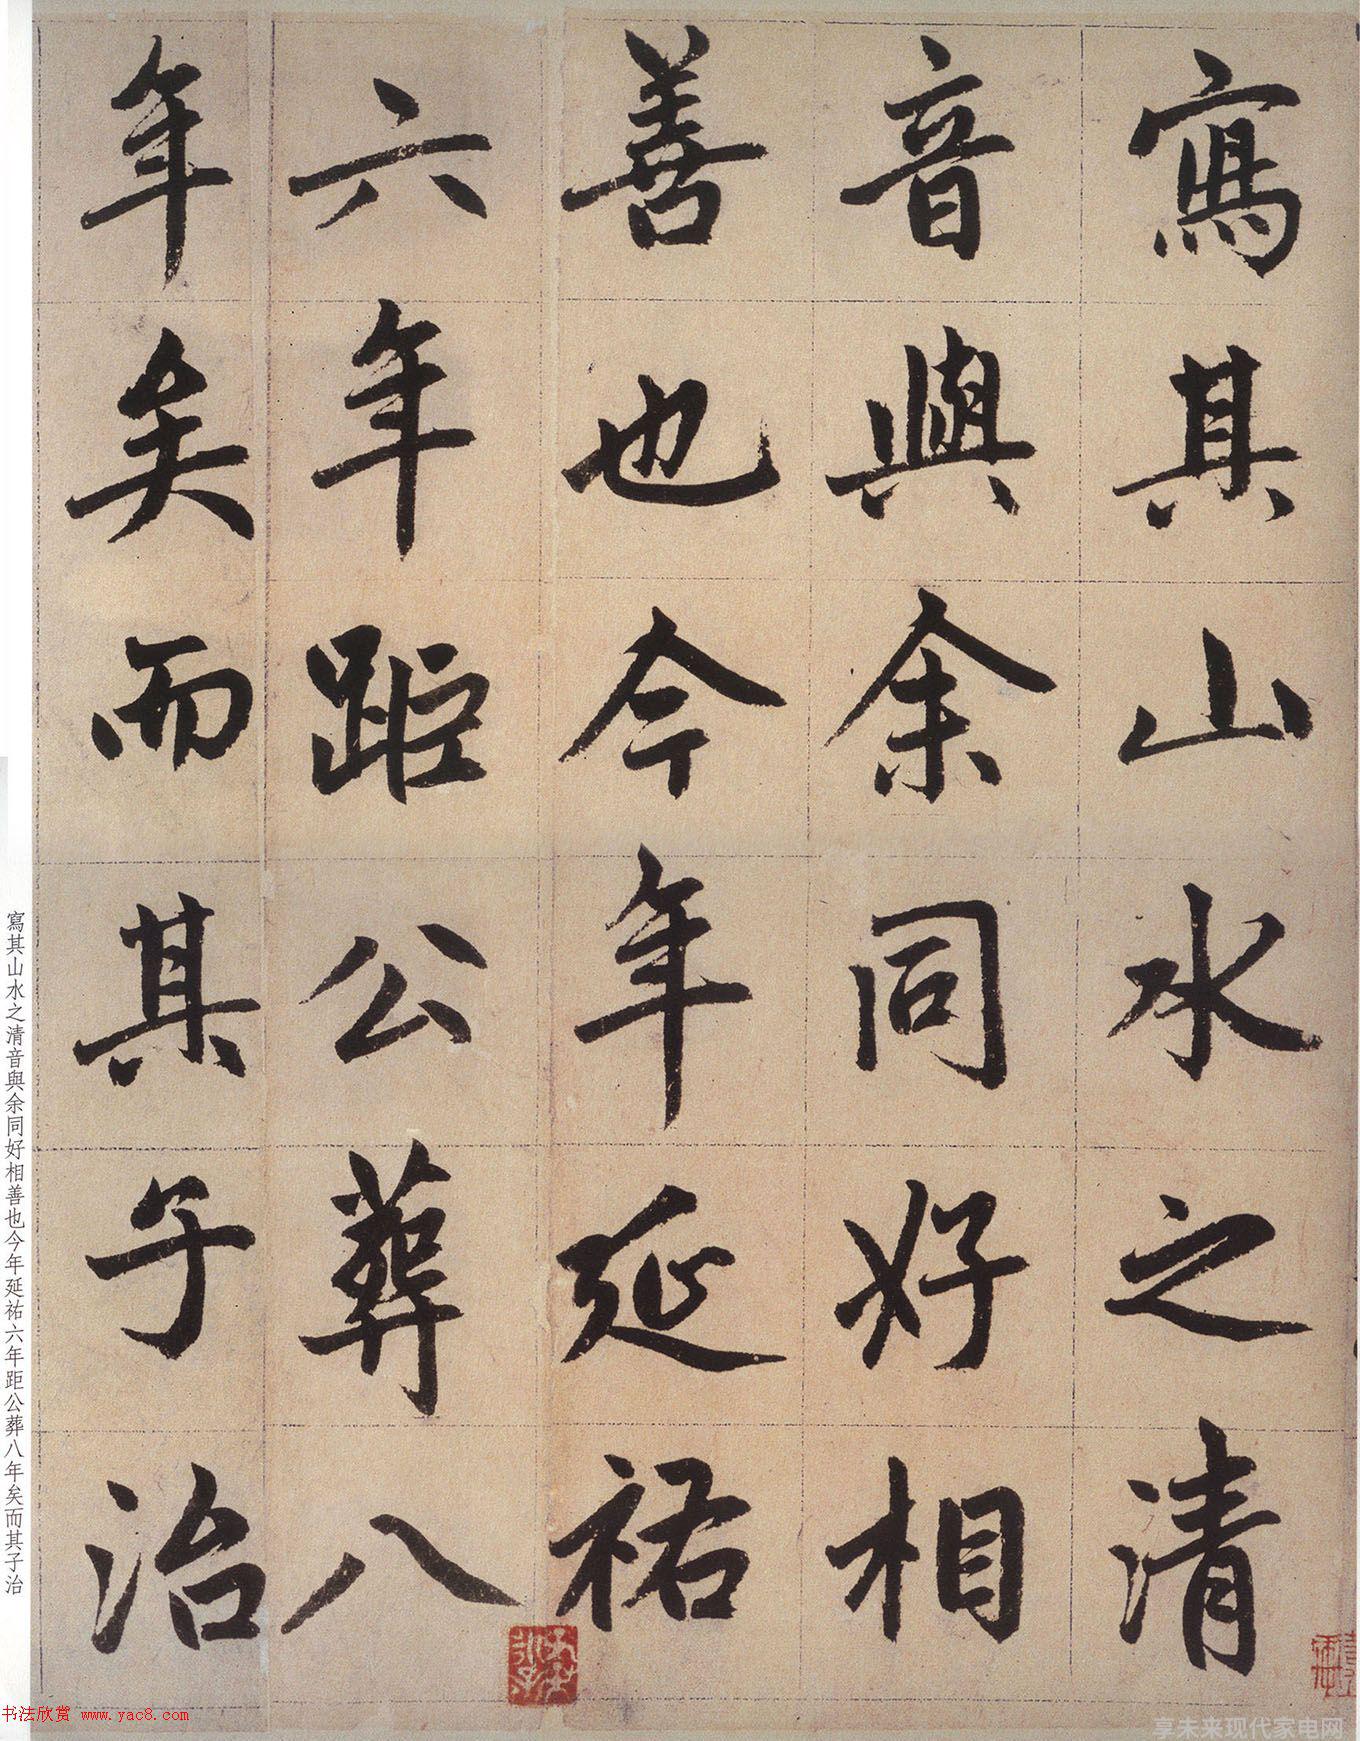 寫其山水之清
音與余同好相
善也今年延祐
六年距公葬八
年矣而其子治
寫其山水之清音與余同好相善也今年延祐六年距公葬八年矣而其子治
书法欣赏 www.yac8.com
享未来现代家电网